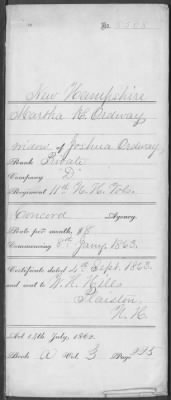 No. 5508
New Hampshire
Martha E. Ordway
widow of Joshua Ordway,
Rank Private
Company "D"
Regiment 11th N. H. Vols.
Concord Agency.
Rate per month, $8
Commencing 8th Jany. 1863.
Certificate dated 4th Sept. 1863.
and sent to W. H. Hills
Plaistow,
N. H.
Act 14th July, 1862.
Book A Vol. 3 Page 225